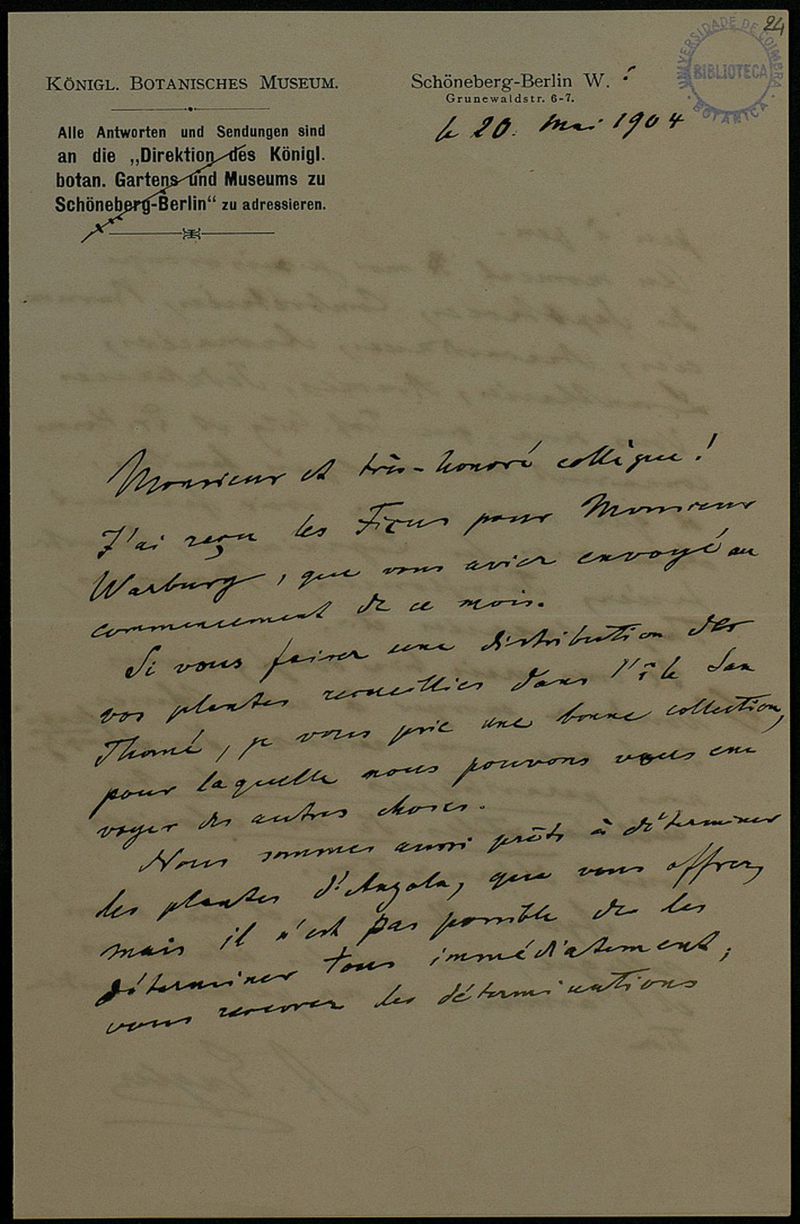 24
UNIVERSIDADE DE COIMBRA
BIBLIOTECA
BOTANICA
KÖNIGL. BOTANISCHES MUSEUM.
Alle Antworten und Sendungen sind
an die „Direktion des Königl.
botan. Gartens und Museums zu
Schöneberg-Berlin“ zu adressieren.
Schöneberg-Berlin W.
Grunewaldstr. 6-7.
le 20. Mai 1904
Monsieur et très-honoré collègue!
J'ai reçu les Ficus pour Monsieur
Warburg, que vous avier envoyé au
commencement de ce mois.
Si vous faiser une distribution des
vos plantes recueillies dans l'île San
Thomé, je vous prie une bonne collection,
pour laquelle nous pouvons vous en
voyer des autres choses.
Nous sommes aussi prêts à déterminer
les plantes d'Angola, que vous offrez,
mais il n'est pas possible de les
déterminer tous immédiatement;
vous recevrez les déterminations